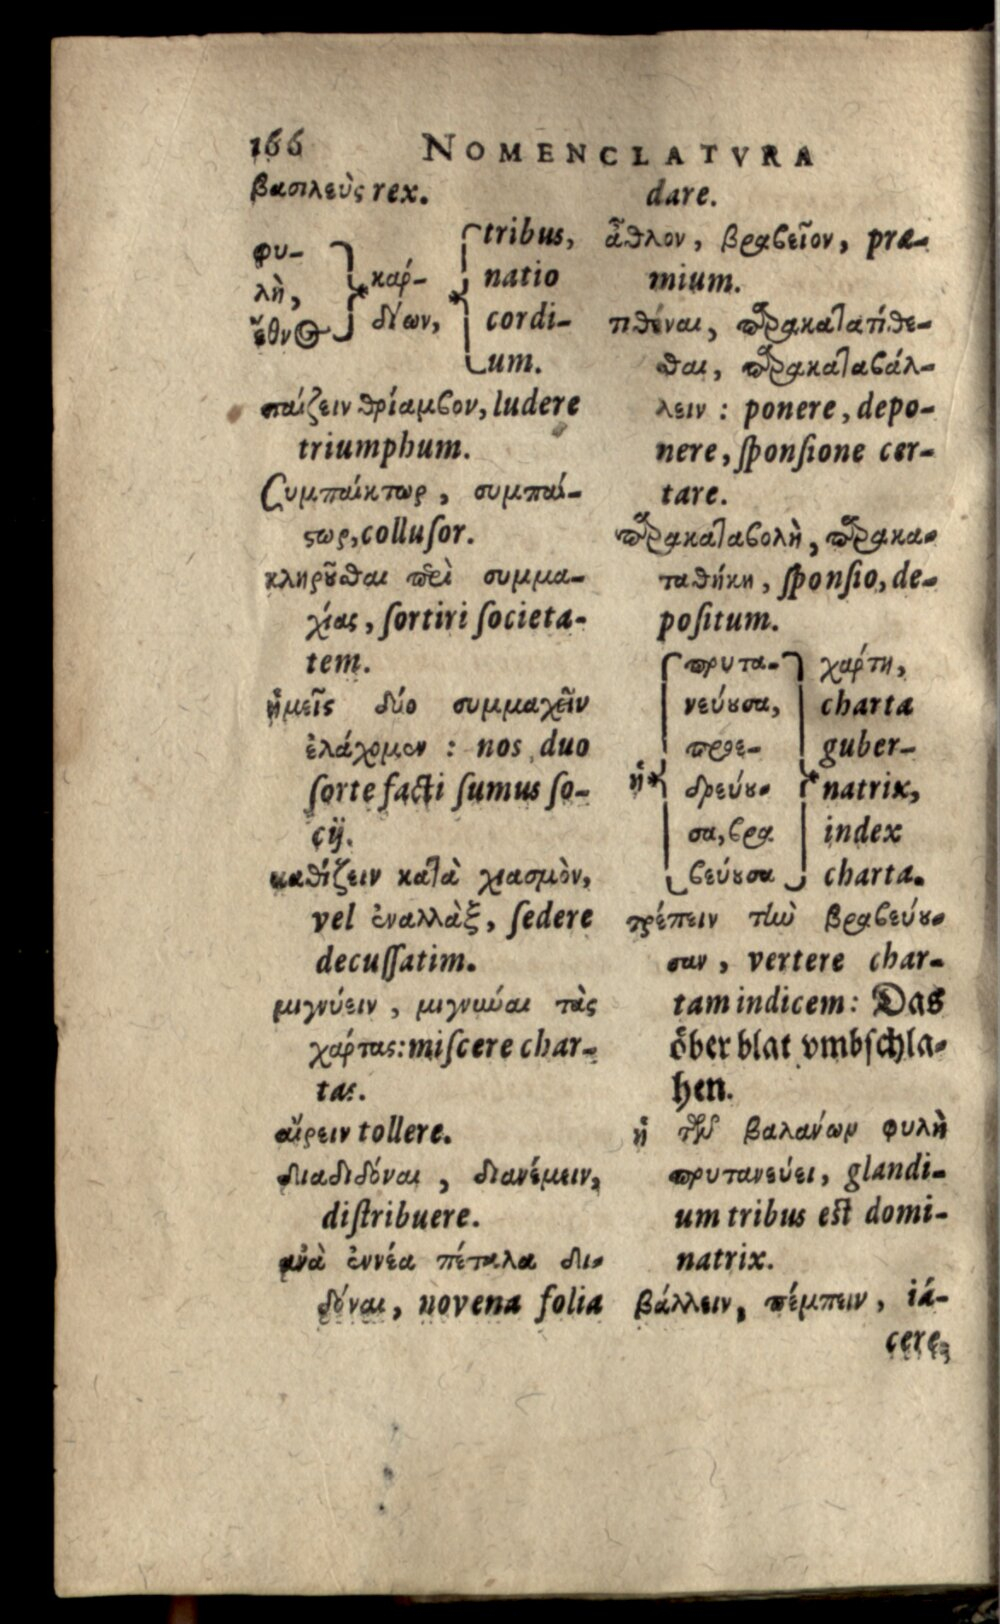 166 NOMENCLATVRA
βασιλεὺς rex.
φυ-
λὴ,
ἔθνος
καρ-
δίων,
tribus,
natio
cordi-
um.
παίζειν θρίαμβον, ludere
triumphum.
Συμπαίκτωρ, συμπαί-
στωρ, colluſor.
κληροῦσθαι περὶ συμμα-
χίας, ſortiri ſocieta-
tem.
ἡμεῖς δύο συμμαχεῖν
ἐλάχομεν : nos duo
ſorte facti ſumus ſo-
cij.
καθίζειν κατὰ χιασμὸν,
vel ἐναλλὰξ, ſedere
decuſſatim.
μιγνύειν, μιγνύναι τὰς
χάρτας: miſcere char-
tas.
αἴρειν tollere.
διαδιδόναι, διανέμειν,
diſtribuere.
ἀνὰ ἐννέα πέταλα δι-
δόναι, novena folia
dare.
ἆθλον, βραβεῖον, præ-
mium.
τιθέναι, παρακατατίθε-
σθαι, παρακαταβάλ-
λειν : ponere, depo-
nere, ſponſione cer-
tare.
παρακαταβολὴ, παρακα-
ταθήκη, ſponſio, de-
poſitum.
ἡ
πρυτα-
νεύουσα,
προε-
δρεύου-
σα, βρα
βεύουσα
χάρτη,
charta
guber-
natrix,
index
charta.
τρέπειν τὴν βραβεύου-
σαν, vertere char-
tam indicem: Das
öber blat vmbſchla-
hen.
ἡ τῶν βαλάνων φυλὴ
πρυτανεύει, glandi-
um tribus eſt domi-
natrix.
βάλλειν, πέμπειν, iá-
cere,